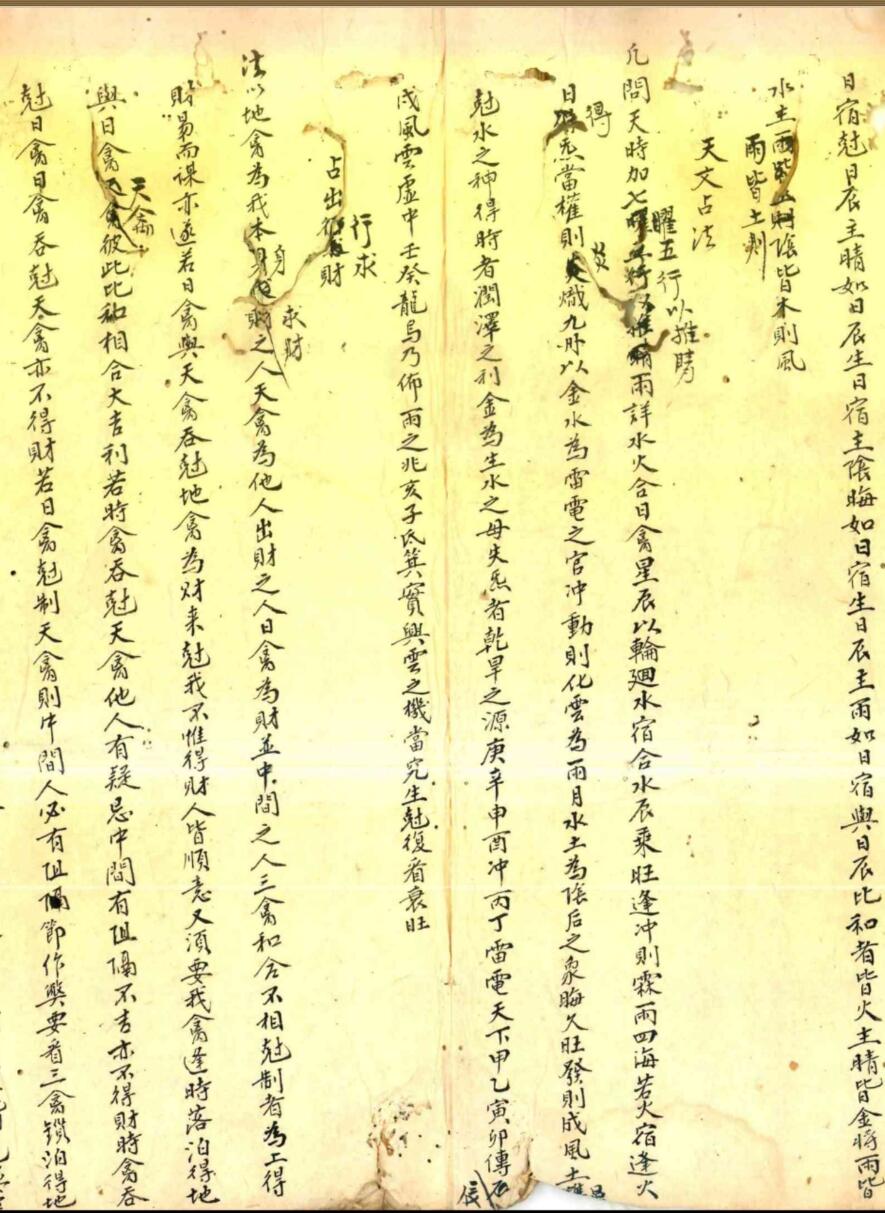 日宿尅日辰主晴如日辰生日宿主陰晦如日宿生日辰主雨如日宿與日辰比和者皆火主晴皆金將雨皆
水主雨皆土則陰皆木則風
雨皆土則
天文占法
凡問天時加七曜五行以推晴雨詳水火合日禽星辰以輪廻水宿合水辰乘旺逢冲則霖雨四海若火宿逢火
曜五行以推晴
日得炁當權則炎熾九州以金水為雷電之官冲動則化雲為雨月水土為陰后之象晦久旺發則成風土
得
炎
尅水之神得時者潤澤之利金為生水之母失炁者乾旱之源庚辛申酉冲丙丁雷電天下甲乙寅卯傳
辰
戌風雲虛中壬癸龍烏乃佈雨之兆亥子氐箕實興雲之機當究生尅復看衰旺
占出行求財
行求
法以地禽為我本身求財之人天禽為他人出財之人日禽為財並中間之人三禽和合不相尅制者為上得
身
求財
財易而謀亦遂若日禽與天禽吞尅地禽為财来尅我不惟得財人皆順意又須要我禽逢時落泊得地
與日禽天禽彼此比和相合大吉利若時禽吞尅天禽他人有疑忌中間有阻隔不吉亦不得財時禽吞
天禽
尅日禽日禽吞尅天禽亦不得財若日禽尅制天禽則中間人必有阻隔節作獘要看三禽鎖泊得地